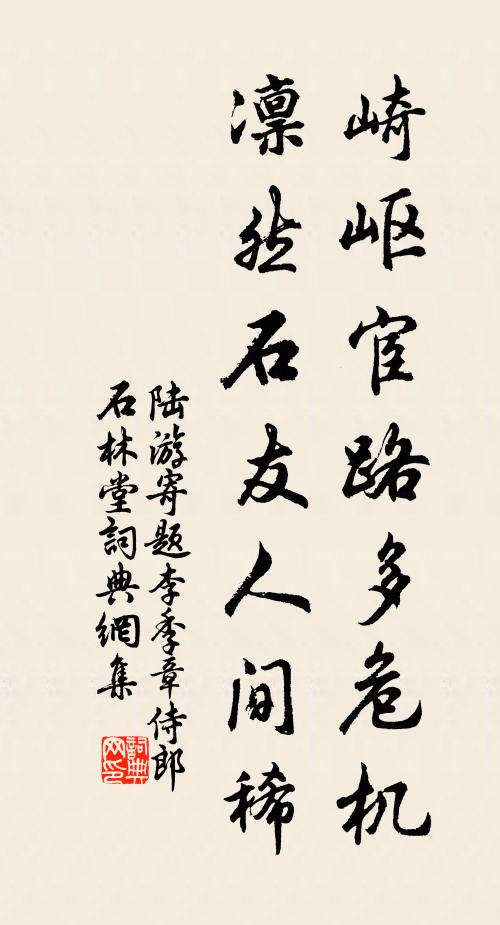 崎岖宦路多危机
凛然石友人间稀
陆游寄题李季章侍郎
石林堂詞典網集
詞典网印